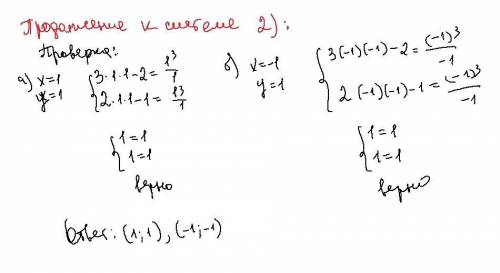 Продолжение к системе 2):
Проверка:
а) x=1
y=1
{ 3·1·1-2 = 1³/1
2·1·1-1 = 1³/1
{ 1=1
1=1
верно
б) x=-1
y=1
{ 3(-1)(-1)-2 = (-1)³/-1
2(-1)(-1)-1 = (-1)³/-1
{ 1=1
1=1
верно
Ответ: (1;1), (-1;-1)